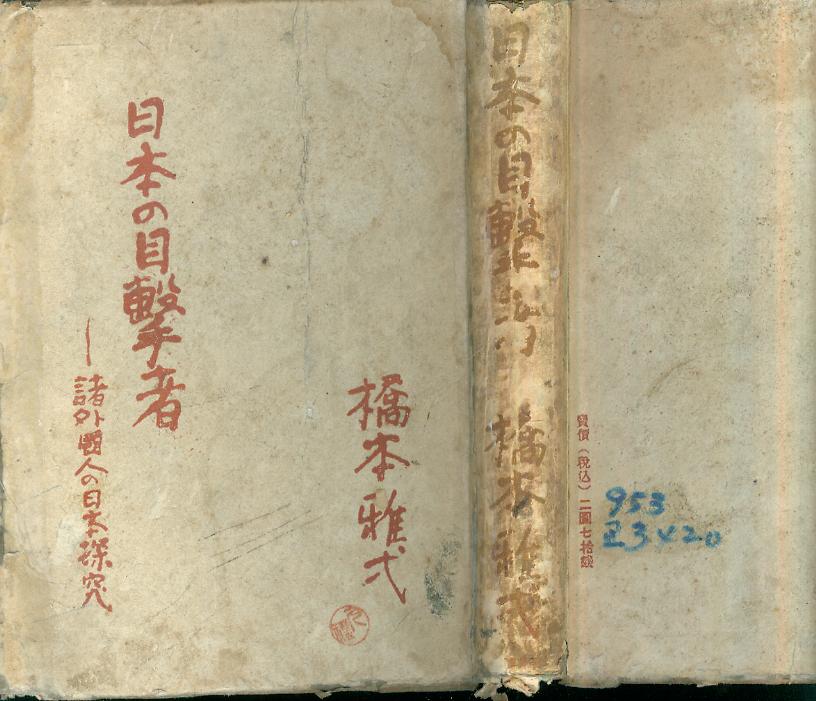 日本の目撃者
―諸外國人の日本探究
橋本雅弌
日本の目撃者 橋本雅弌
賣價（税込）二圓七拾錢
953